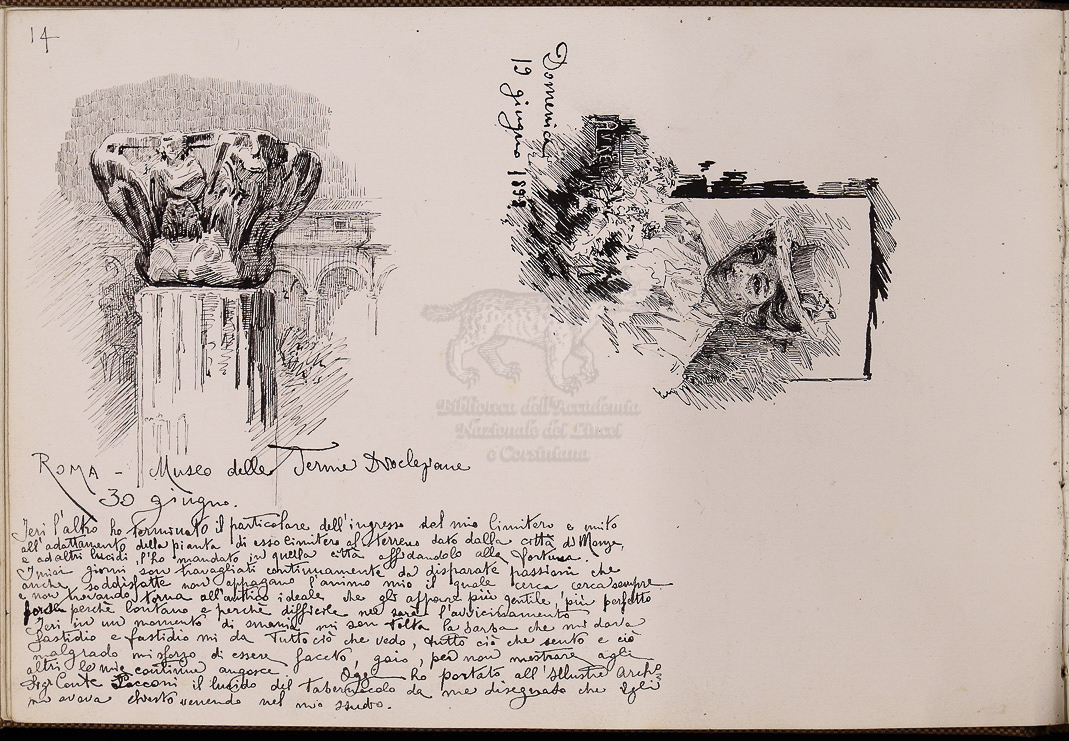 14
Domenica
19 giugno 1898
Biblioteca dell'Accademia
Nazionale dei Lincei
e Corsiniana
ROMA - Museo delle Terme Diocleziane
30 giugno.
Jeri l'altro ho terminato il particolare dell'ingresso del mio Cimitero e unito
all'adattamento della pianta di esso Cimitero al terreno dato dalla città di Monza,
e ad altri lucidi, l'ho mandato in quella città affidandolo alla fortuna.
I miei giorni son travagliati continuamente da disparate passioni che
anche soddisfatte non appagano l'animo mio il quale cerca cerca sempre
e non trovando torna all'antico ideale che gli appare più gentile, più perfetto
forse perché lontano e perché difficile ne sarà l'avvicinamento
Jeri in un momento di smania mi son tolta la barba che mi dava
fastidio e fastidio mi da tutto ciò che vedo, tutto ciò che sento e ciò
malgrado mi sforzo di essere faceto, gaio, per non mostrare agli
altri le mie continue angosce. Oggi ho portato all'Illustre Archo
Sigr Conte Sacconi il lucido del Tabernacolo da me disegnato che Egli
mi aveva chiesto venendo nel mio studio.